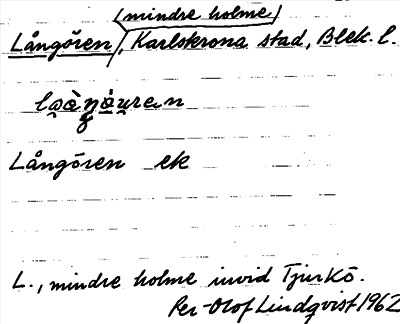 (mindre holme)
Långören, Karlskrona stad, Blek. l.
Långören ek
L., mindre holme invid Tjurkö.
Per-Olof Lindqvist 1962